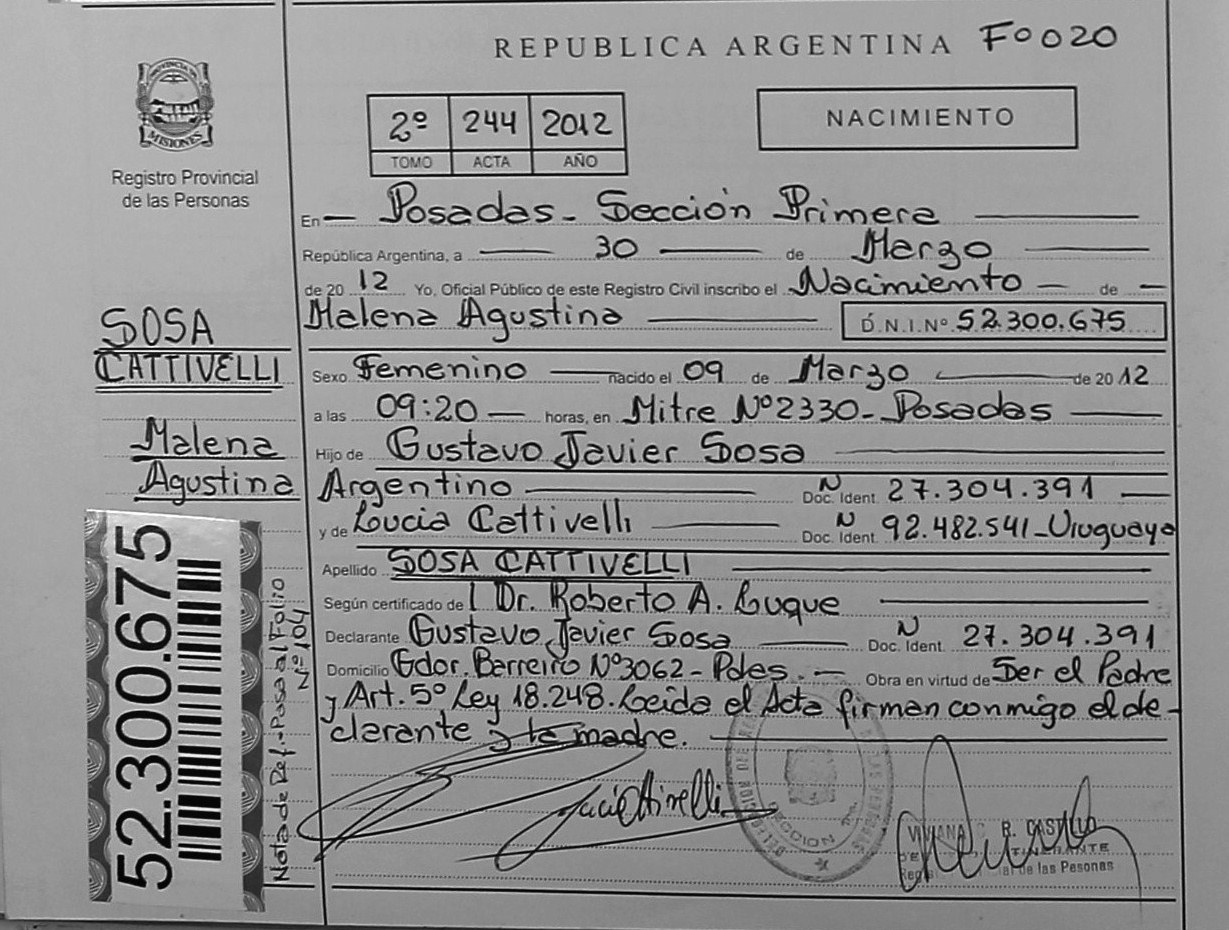 REPUBLICA ARGENTINA Fº 020
PROVINCIA DE
MISIONES
Registro Provincial
de las Personas
2º 244 2012
TOMO ACTA AÑO
NACIMIENTO
En — Posadas - Sección Primera
República Argentina, a 30 de Marzo
de 20 12 Yo, Oficial Público de este Registro Civil inscribo el Nacimiento — de —
Malena Agustina D.N.I. Nº 52.300.675
Sexo Femenino nacido el 09 de Marzo de 2012
a las 09:20 — horas, en Mitre Nº2330 - Posadas
Hijo de Gustavo Javier Sosa
Argentino N Doc. Ident. 27.304.391
y de Lucia Cattivelli N Doc. Ident. 92.482.541 - Uruguaya
Apellido SOSA CATTIVELLI
Según certificado de l Dr. Roberto A. Luque
Declarante Gustavo Javier Sosa N Doc. Ident. 27.304.391
Domicilio Gdor. Barreiro Nº3062 - Pdas. — Obra en virtud de Ser el Padre
y Art. 5º Ley 18.248. Leída el Acta firman conmigo el de-
clarante y la madre.
SOSA
CATTIVELLI
Malena
Agustina
52.300.675
Nota de Ref. - Pasa al Folio
Nº 104
SECCION
R. CASTILLO
de las Pesonas